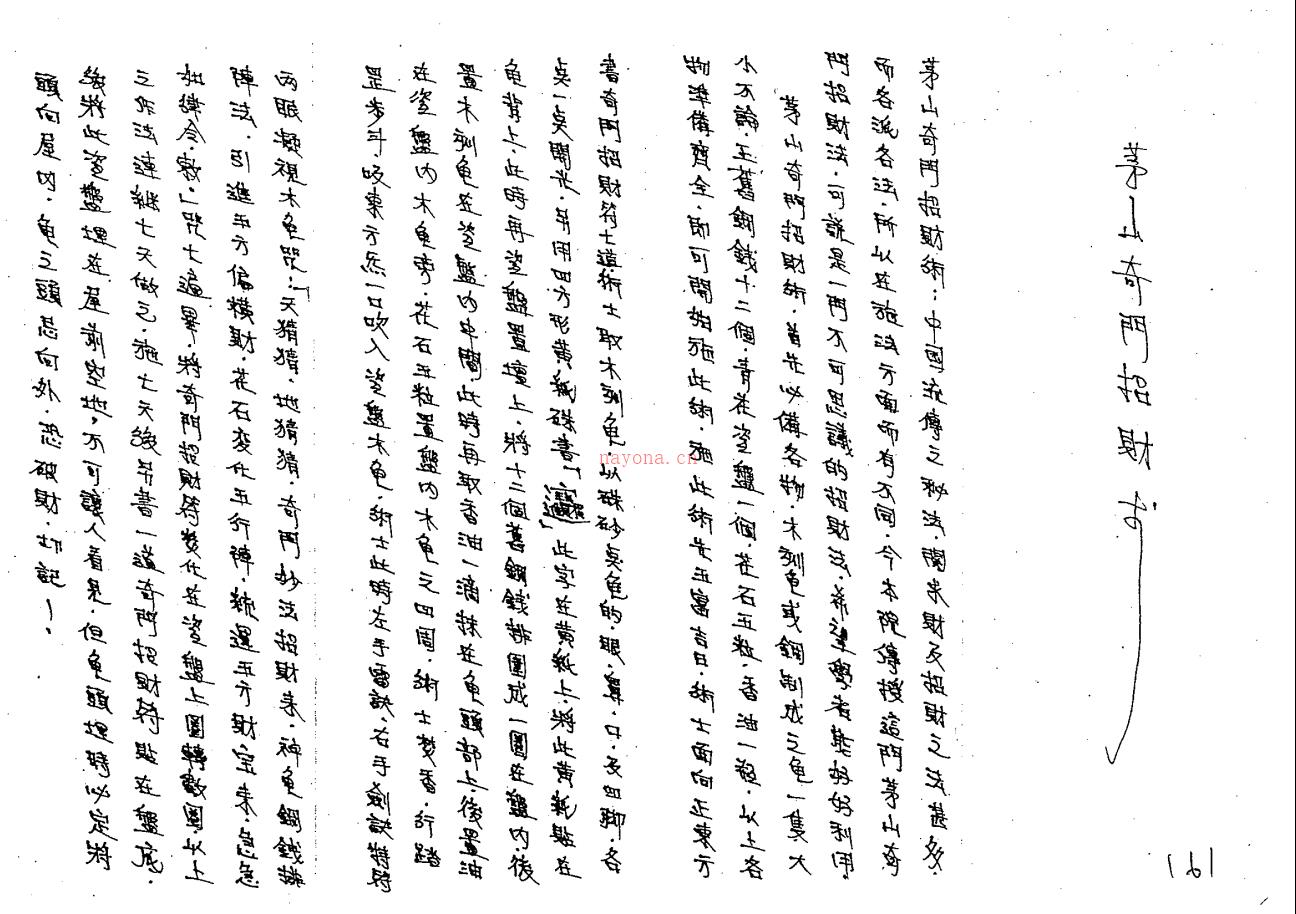 茅山奇門招財术
茅山奇門招財術:中国流傳之秘法,関來財及招財之法甚多.
而各派各法.所以在施法方面而有不同.今本院傳授這門茅山奇
門招財法.可說是一門不可思議的招財法.希望學者能好好利用.
茅山奇門招財術.首先必備各物.木刻龟或銅制成之龟一隻大
小不論.五舊銅錢十二個.青花瓷盤一個.花石五粒.香油一瓶.以上各
物準備齊全.即可開始施此術.施此術先五富吉日.術士面向正東方
書奇門招財符七道術士取木刻龟.以硃砂点龟的.眼.鼻.口.及四脚.各
点一点開光.另用四方形黃紙硃書「」此字在黃紙上.將此黃紙點在
龟背上.此時再瓷盤置壇上.將十二個舊銅錢排圍成一圈在盤内.後
置木刻龟在瓷盤内中間.此時再取香油一滴抹在龟頭部上.後置油
在瓷盤内木龟旁.花石五粒置盤内木龟之四周.術士焚香.行踏
罡步斗.吸東方炁一口吹入瓷盤木龟.術士此時左手雷訣.右手劍訣
两眼凝視木龟咒:「天猜猜.地猜猜.奇門妙法招財來.神龟銅錢排
陣法.引進五方偏横財.花石变化五行陣.統運五方財宝來.急急
如律令.敕」咒七遍畢.將奇門招財符焚化在瓷盤上圈轉數圈.以上
之作法連継七天做之.施七天後另書一道奇門招財符點在盤底.
後將此瓷盤埋在屋前空地,不可讓人看見.但龟頭埋時必定將
頭向屋内.龟之頭忌向外.恐破財.切記!.
161
nayona.cn